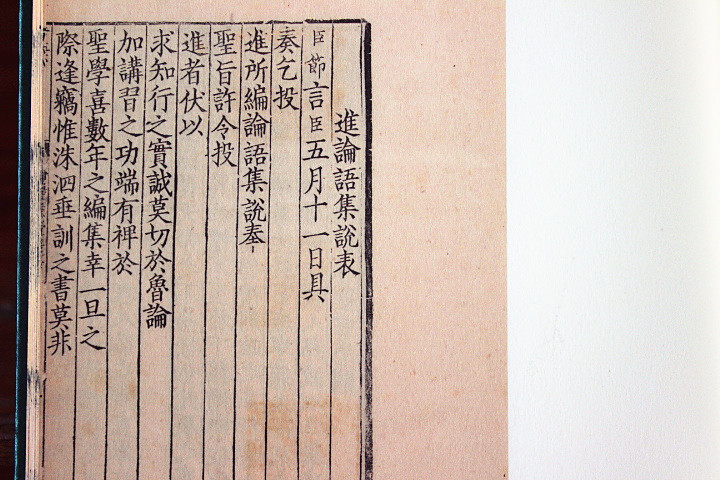 進論語集說表
臣節言臣五月十一日具
奏乞投
進所編論語集說奉
聖旨許令投
進者伏以
求知行之實誠莫切於魯論
加講習之功端有裨於
聖學喜數年之編集幸一旦之
際逢竊惟洙泗垂訓之書莫非